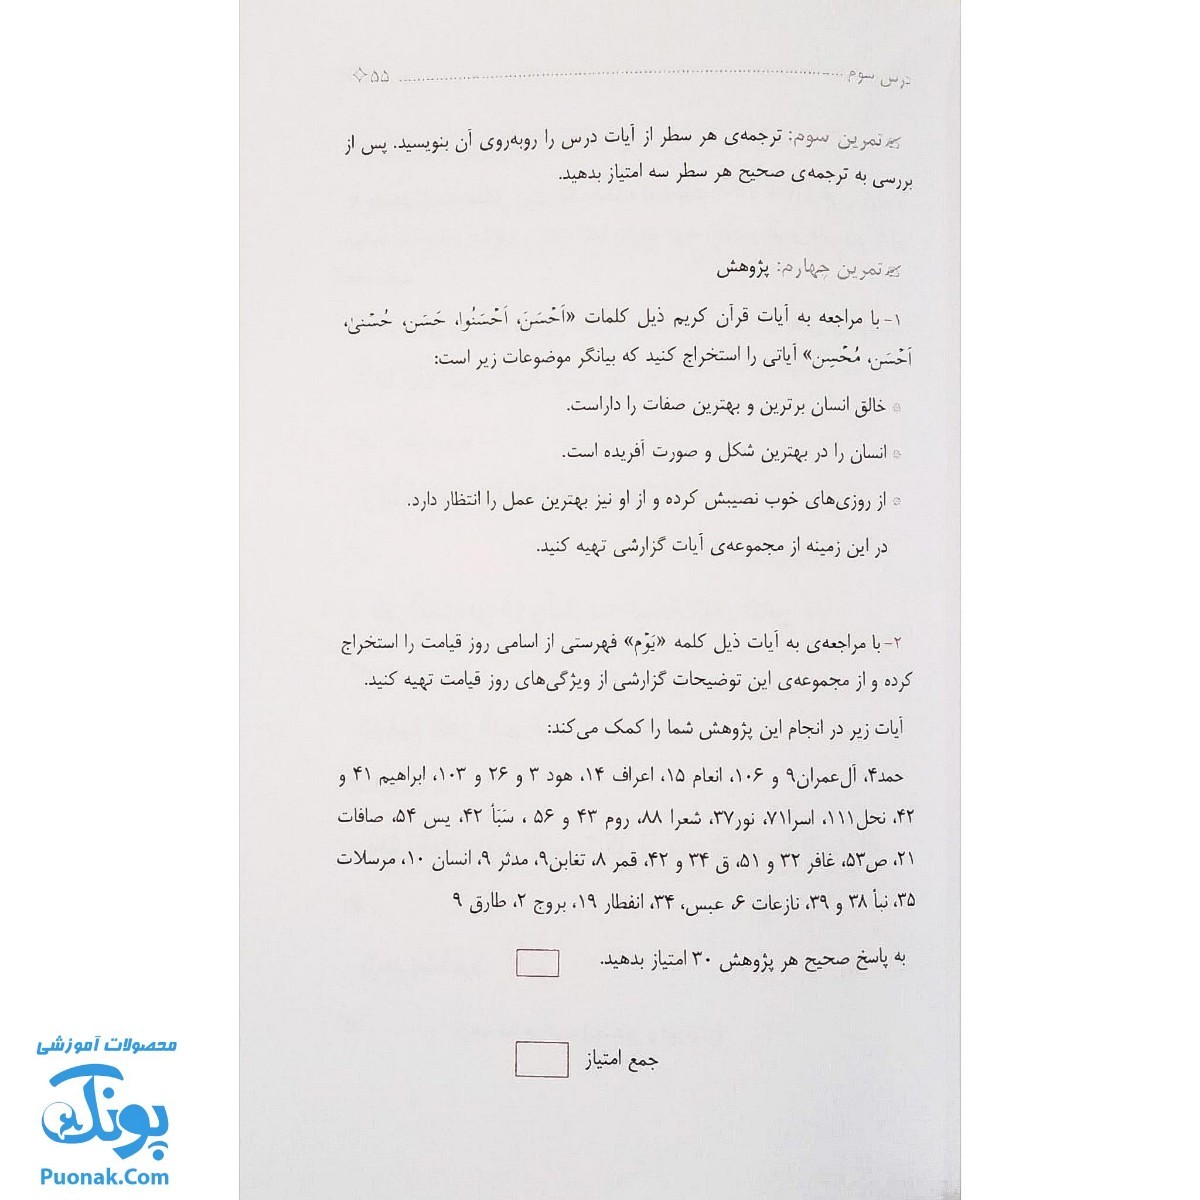 درس سوم ........................................ ۵۵
تمرین سوم: ترجمه‌ی هر سطر از آیات درس را روبه‌روی آن بنویسید. پس از
بررسی به ترجمه‌ی صحیح هر سطر سه امتیاز بدهید.
تمرین چهارم: پژوهش
۱- با مراجعه به آیات قرآن کریم ذیل کلمات «اَحْسَنَ، اَحْسَنُوا، حَسَن، حُسْنیٰ،
اَحْسَن، مُحْسِن» آیاتی را استخراج کنید که بیانگر موضوعات زیر است:
خالق انسان برترین و بهترین صفات را داراست.
انسان را در بهترین شکل و صورت آفریده است.
از روزی‌های خوب نصیبش کرده و از او نیز بهترین عمل را انتظار دارد.
در این زمینه از مجموعه‌ی آیات گزارشی تهیه کنید.
۲- با مراجعه‌ی به آیات ذیل کلمه «یَوْم» فهرستی از اسامی روز قیامت را استخراج
کرده و از مجموعه‌ی این توضیحات گزارشی از ویژگی‌های روز قیامت تهیه کنید.
آیات زیر در انجام این پژوهش شما را کمک می‌کند:
حمد۴، آل‌عمران۹ و ۱۰۶، انعام ۱۵، اعراف ۱۴، هود ۳ و ۲۶ و ۱۰۳، ابراهیم ۴۱ و
۴۲، نحل۱۱۱، اسرا۷۱، نور۳۷، شعرا ۸۸، روم ۴۳ و ۵۶ ، سَبَأ ۴۲، یس ۵۴، صافات
۲۱، ص۵۳، غافر ۳۲ و ۵۱، ق ۳۴ و ۴۲، قمر ۸، تغابن۹، مدثر ۹، انسان ۱۰، مرسلات
۳۵، نبأ ۳۸ و ۳۹، نازعات ۶، عبس، ۳۴، انفطار ۱۹، بروج ۲، طارق ۹
به پاسخ صحیح هر پژوهش ۳۰ امتیاز بدهید.
جمع امتیاز
محصولات آموزشی
پونک
Puonak.Com